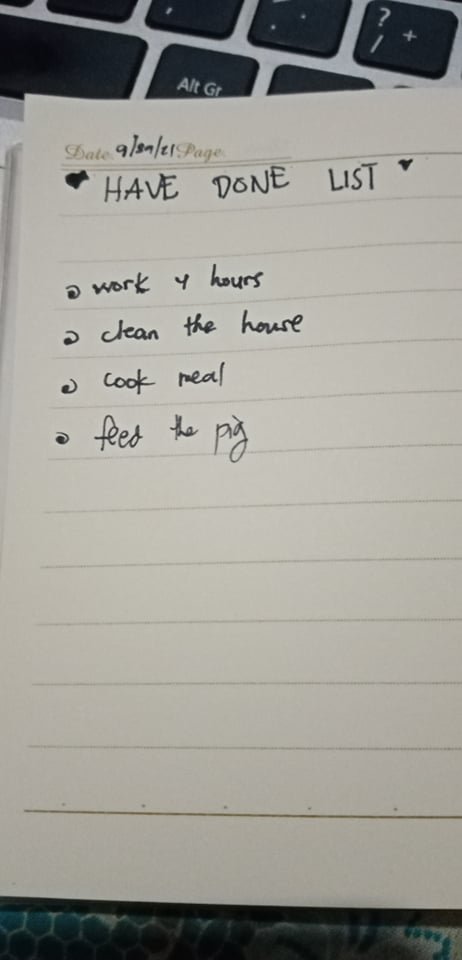 ? +
/
Alt Gr
Date 9/ /21 Page
HAVE DONE LIST
work 4 hours
clean the house
cook meal
feed the pig